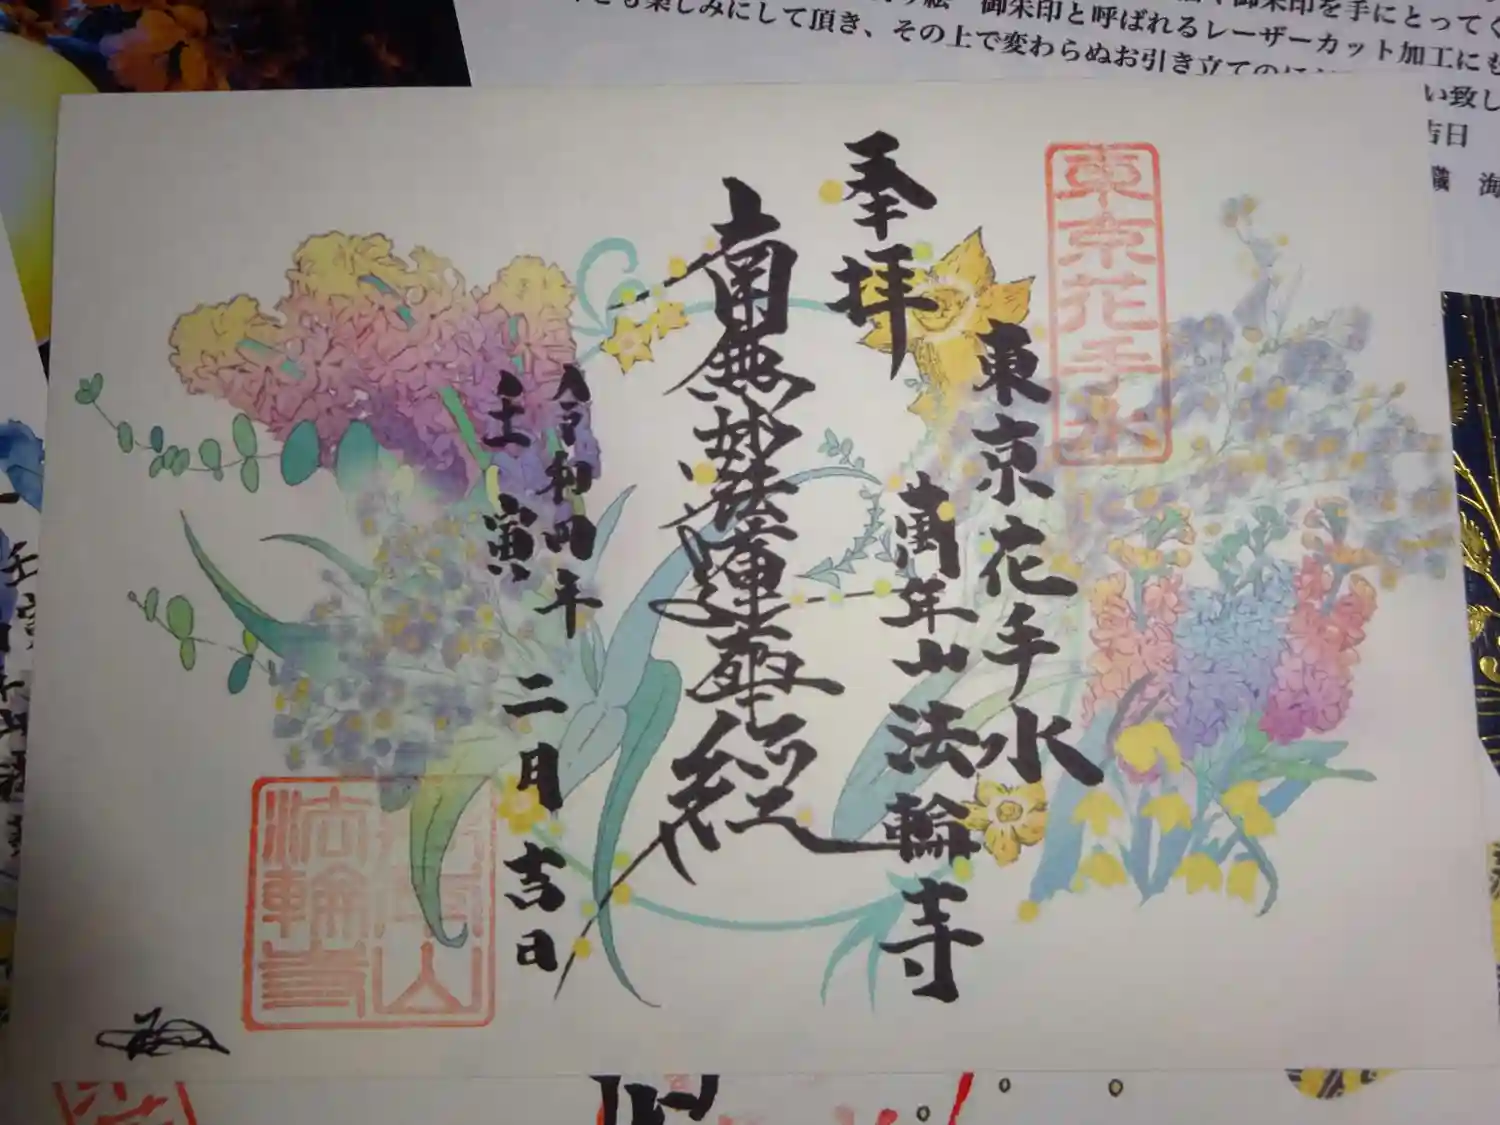 御朱印を手にとって
御朱印と呼ばれるレーザーカット加工にも
楽しみにして頂き、その上で変わらぬお引き立ての
い致し
吉日
海
東京花手水
奉拝
東京花手水
萬年山法輪寺
南無妙法蓮華経
令和四年二月吉日
壬寅
萬年山
法輪寺